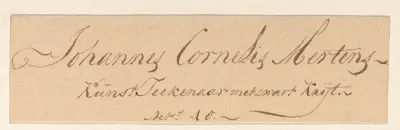 Johannes Cornelis Mertens
Kunst Teekenaar met zwart Krijt.